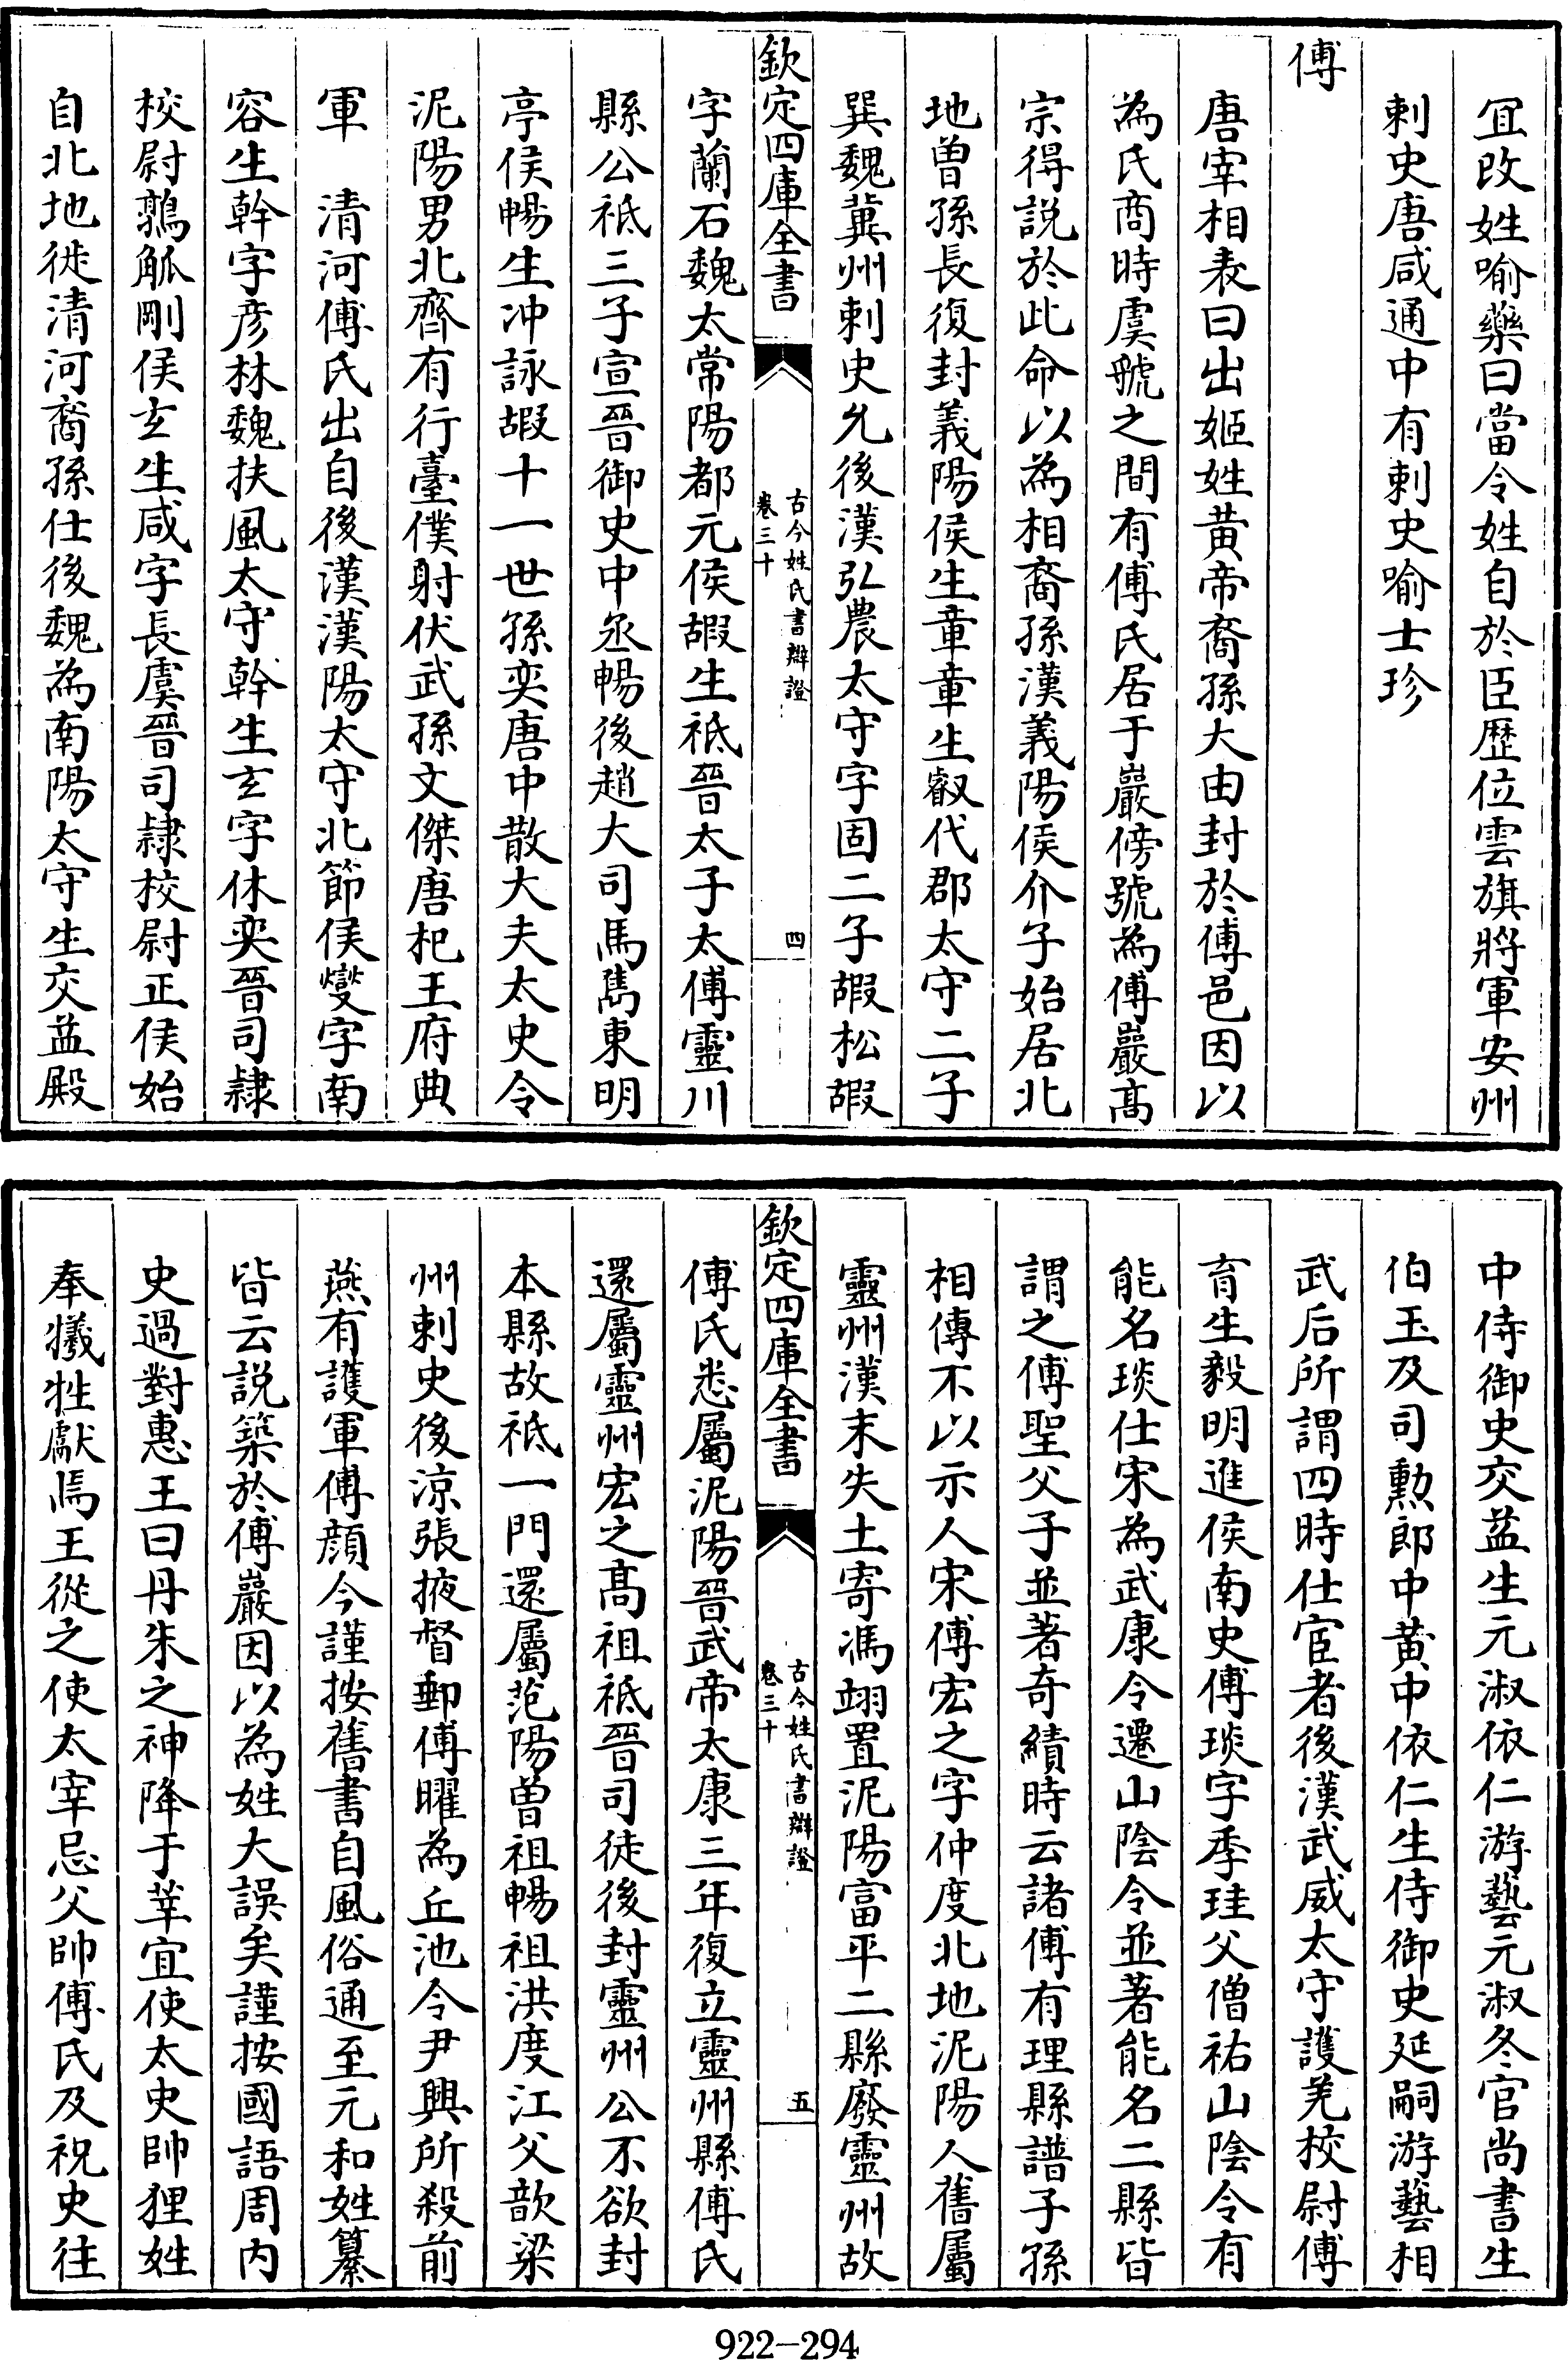 冝改姓喻藥曰當令姓自於臣歴位雲旗將軍安州
刺史唐咸通中有刺史喻士珍
傅
唐宰相表曰出姬姓黃帝裔孫大由封於傅邑因以
為氏商時虞虢之間有傅氏居于巖傍號為傅巖髙
宗得説於此命以為相裔孫漢義陽侯介子始居北
地曾孫長復封義陽侯生章章生叡代郡太守二子
巽魏冀州刺史允後漢弘農太守字固二子嘏松嘏
欽定四庫全書
古今姓氏書辯證
卷三十
四
字蘭石魏太常陽都元侯嘏生祗晉太子太傅靈川
縣公祗三子宣晉御史中丞暢後趙大司馬雋東明
亭侯暢生冲詠嘏十一世孫奕唐中散大夫太史令
泥陽男北齊有行臺僕射伏武孫文傑唐杞王府典
軍　清河傅氏出自後漢漢陽太守北節侯燮字南
容生幹字彦林魏扶風太守幹生玄字休奕晉司隸
校尉鶉觚剛侯玄生咸字長虞晉司隸校尉正侯始
自北地徙清河裔孫仕後魏為南陽太守生交益殿
中侍御史交益生元淑依仁游藝元淑冬官尚書生
伯玉及司勲郎中黄中依仁生侍御史延嗣游藝相
武后所謂四時仕宦者後漢武威太守護羌校尉傅
育生毅明進侯南史傅琰字季珪父僧祐山陰令有
能名琰仕宋為武康令遷山陰令並著能名二縣皆
謂之傅聖父子並著奇績時云諸傅有理縣譜子孫
相傳不以示人宋傅宏之字仲度北地泥陽人舊屬
靈州漢末失土寄馮翊置泥陽富平二縣廢靈州故
欽定四庫全書
古今姓氏書辯證
卷三十
五
傅氏悉屬泥陽晉武帝太康三年復立靈州縣傅氏
還屬靈州宏之髙祖祗晉司徒後封靈州公不欲封
本縣故祗一門還屬范陽曾祖暢祖洪度江父歆梁
州刺史後涼張掖督郵傅曜為丘池令尹興所殺前
燕有護軍傅顔今謹按舊書自風俗通至元和姓纂
皆云説築於傅巖因以為姓大誤矣謹按國語周内
史過對惠王曰丹朱之神降于莘宜使太史帥狸姓
奉犧牲獻焉王從之使太宰忌父帥傅氏及祝史往
922—294